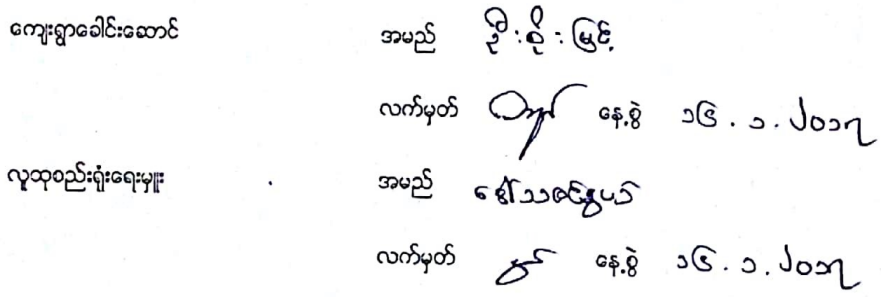 ကျေးရွာခေါင်းဆောင် အမည် ဦးစိုးမြင့်
လက်မှတ် နေ့စွဲ ၁၆.၁.၂၀၁၇
လူထုစည်းရုံးရေးမှူး အမည် ဒေါ်သဇင်နွယ်
လက်မှတ် နေ့စွဲ ၁၆.၁.၂၀၁၇